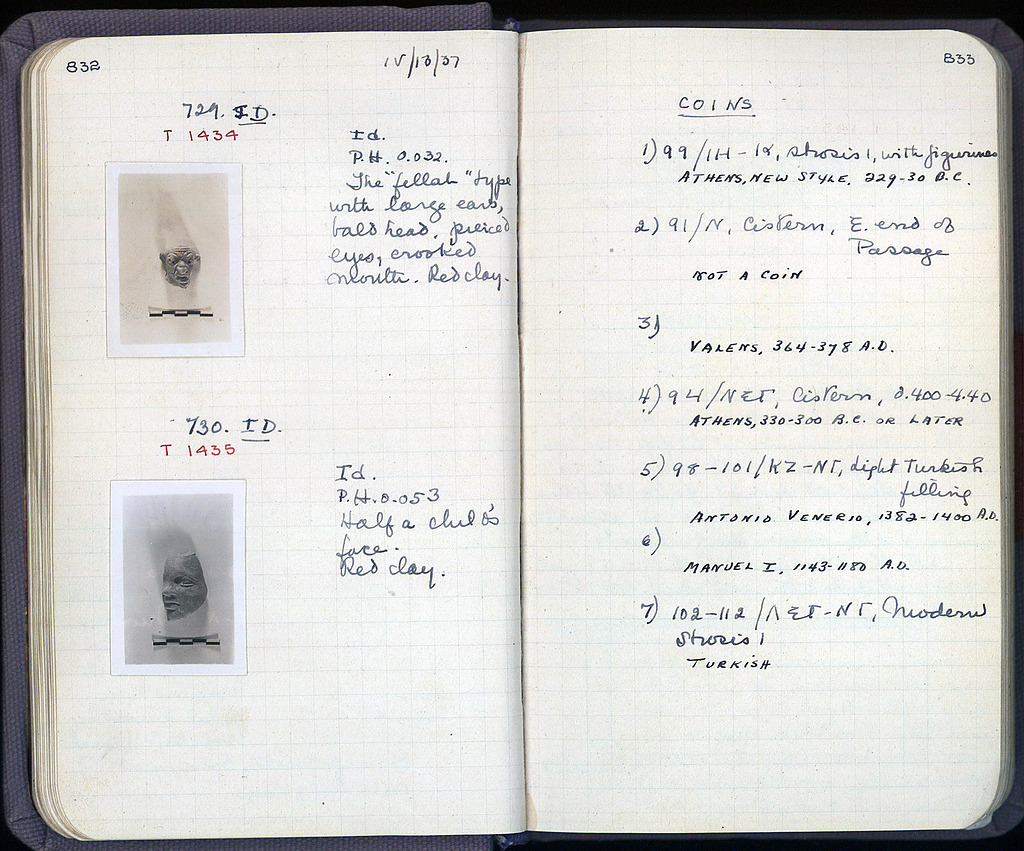 832
IV/13/37
729. ID.
T 1434
Id.
P.H. 0.032.
The "fellah" type
with large ears,
bald head, pierced
eyes, crooked
mouth. Red clay.
730. ID.
T 1435
Id.
P.H. 0.053
Half a child's
face.
Red clay.
833
COINS
1) 99/IH-IK, Strosis 1, with figurines
ATHENS, NEW STYLE, 229-30 B.C.
2) 91/N, Cistern, E. end of
Passage
NOT A COIN
3)
VALENS, 364-378 A.D.
4) 94/NΣT, Cistern, 0.400-4.40
ATHENS, 330-300 B.C. OR LATER
5) 98-101/KZ-NΓ, Light Turkish
filling
ANTONIO VENERIO, 1382-1400 A.D.
6)
MANUEL I, 1143-1180 A.D.
7) 102-112/ΛΣT-NΓ, Modern
Strosis 1
TURKISH